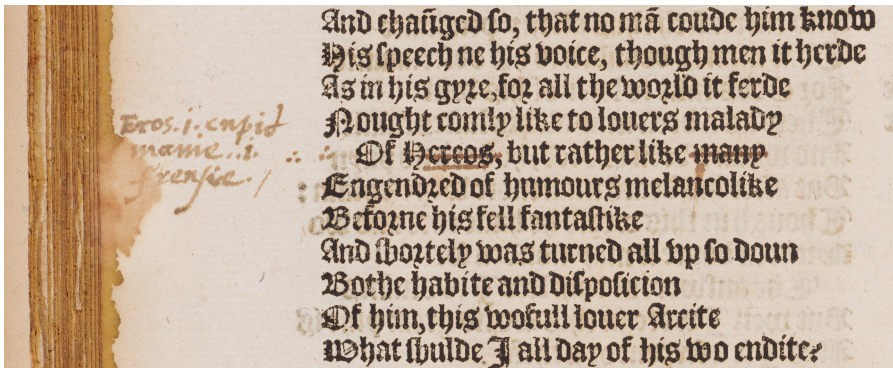 And chaũged so, that no mã coude him know
His speech ne his voice, though men it herde
As in his gyre, for all the world it ferde
Nought comly like to louers malady
Of Hereos, but rather like many
Engendred of humours melancolike
Beforne his fell fantastike
And shortely was turned all vp so doun
Bothe habite and disposicion
Of him, this wofull louer Arcite
What shulde I all day of his wo endite?
Eros .i. cupid
mame .. i.
frensie . /